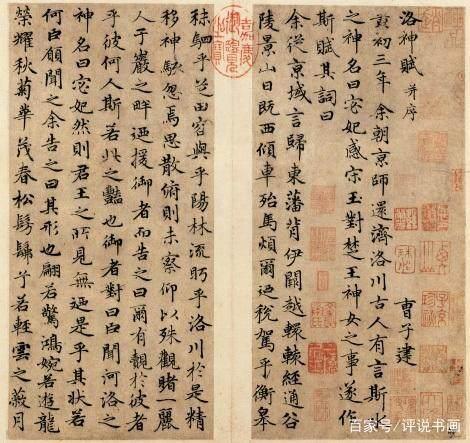 洛神賦 并序
曹子建
黃初三年余朝京師還濟洛川古人有言斯水
之神名曰宓妃感宋玉對楚王神女之事遂作
斯賦其詞曰
余從京域言歸東藩背伊闕越轘轅經通谷
陵景山日既西傾車殆馬煩爾迺稅駕乎衡皋
秣駟乎芝田容與乎陽林流眄乎洛川於是精
移神駭忽焉思散俯則未察仰以殊觀睹一麗
人于巖之畔迺援御者而告之曰爾有覿於彼者
乎彼何人斯若此之豔也御者對曰臣聞河洛之
神名曰宓妃然則君王之所見無迺是乎其狀若
何臣願聞之余告之曰其形也翩若驚鴻婉若遊龍
榮耀秋菊華茂春松髣髴乎若輕雲之蔽月
百家号/评说书画